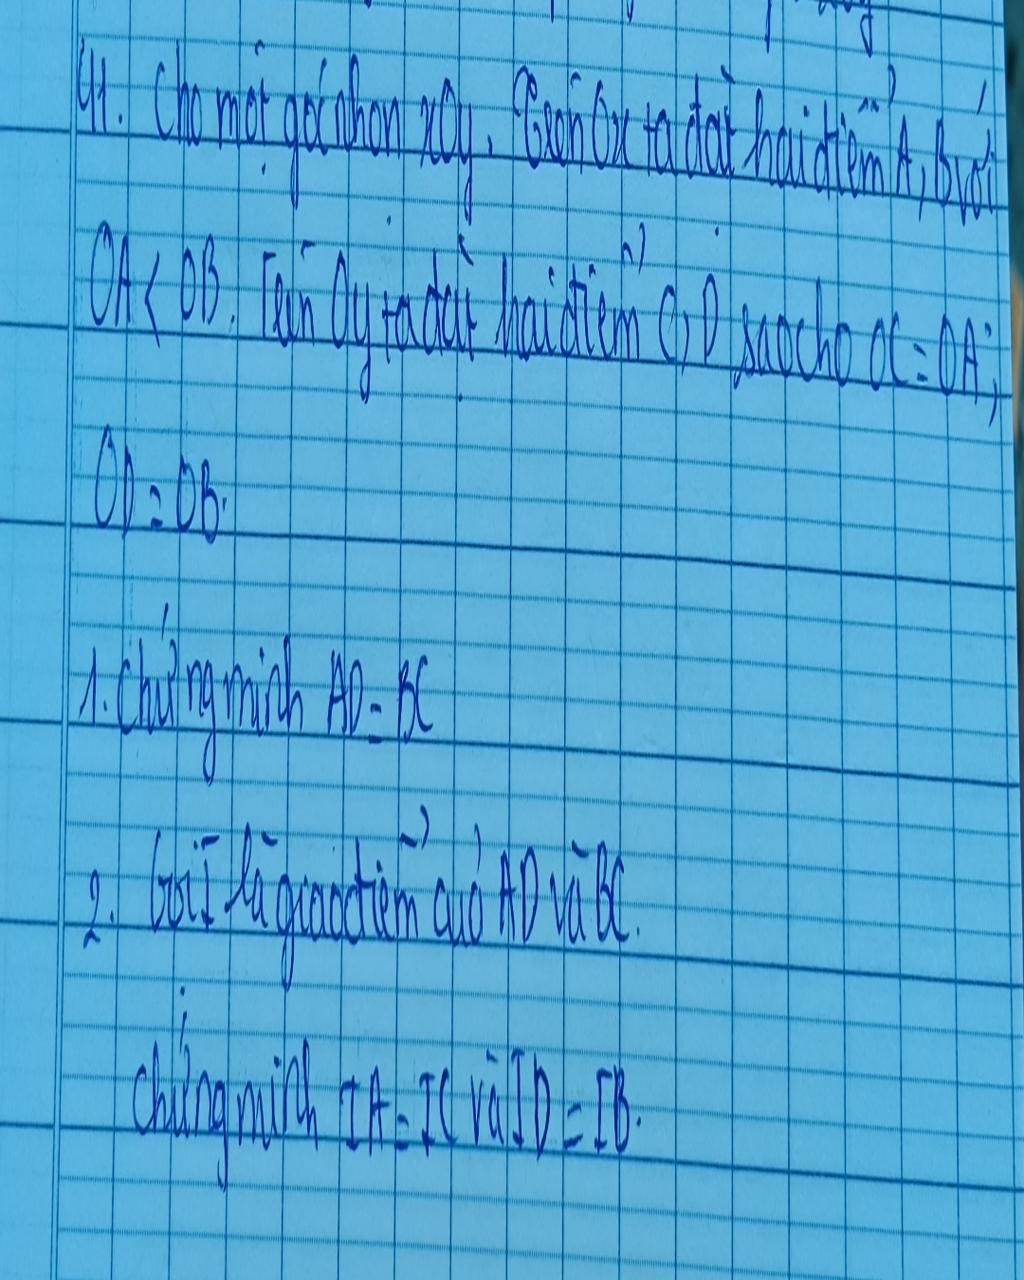 41. Cho một góc nhọn xOy. Trên Ox ta đặt hai điểm A, B với
OA < OB. Trên Oy ta đặt hai điểm C, D sao cho OC = OA;
OD = OB.
1. Chứng minh AD = BC
2. Gọi I là giao điểm của AD và BC.
Chứng minh IA = IC và ID = IB.